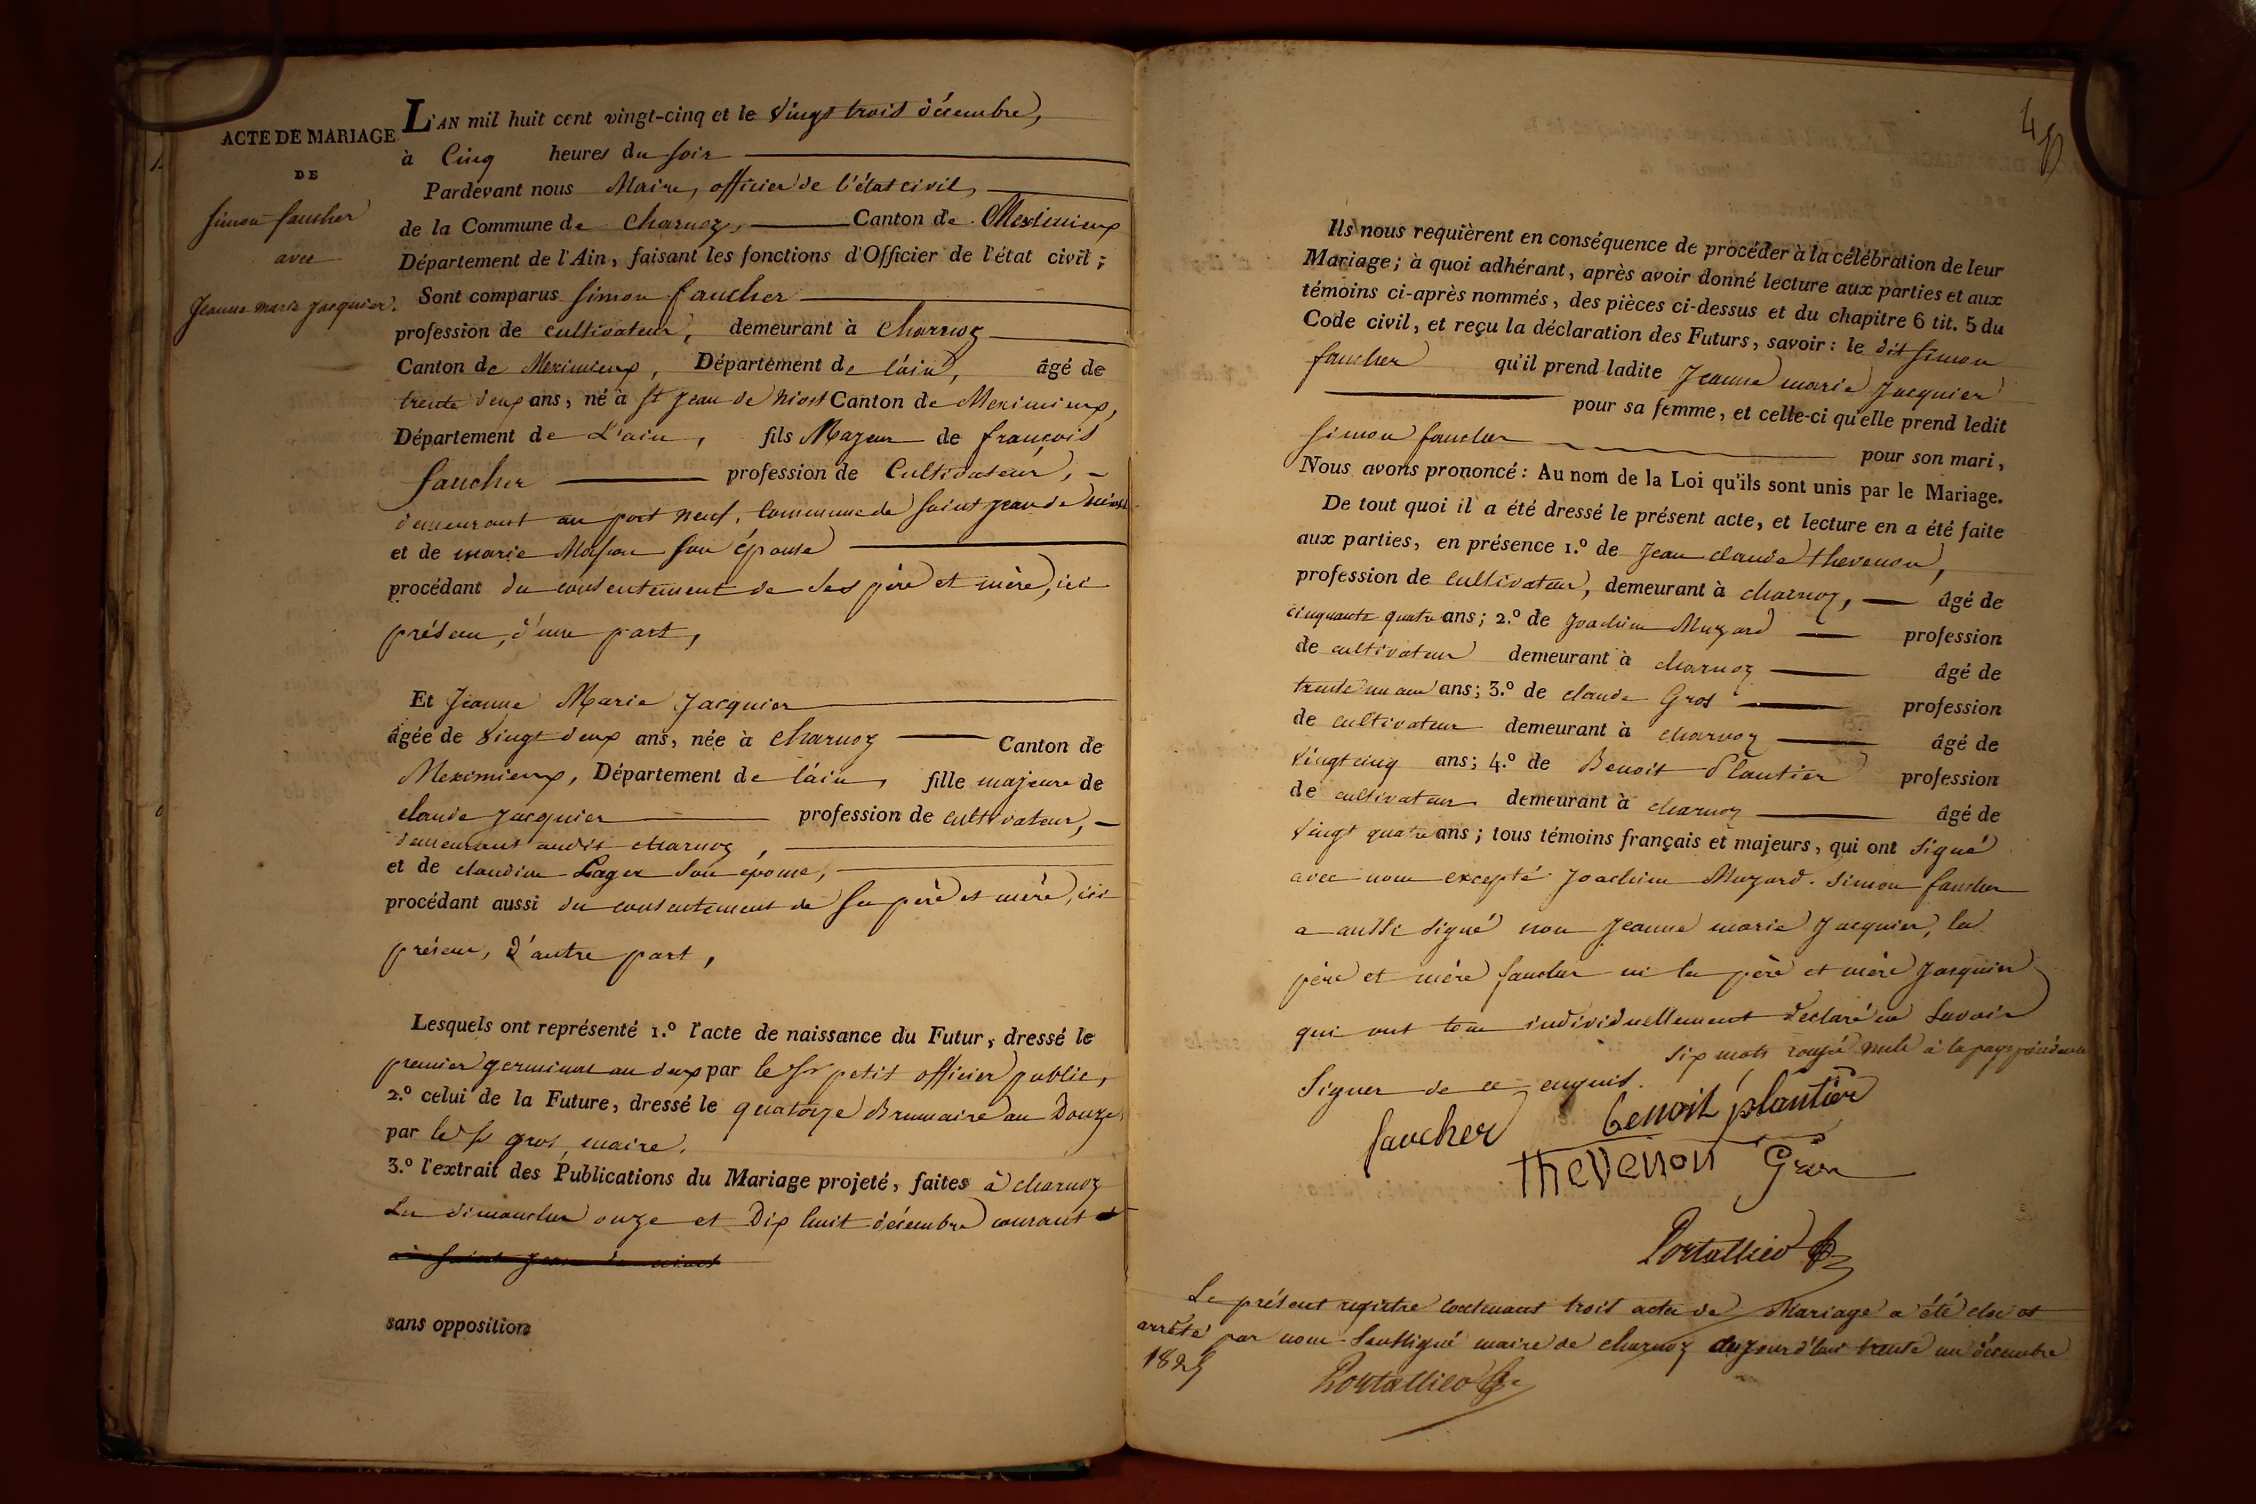 ACTE DE MARIAGE
DE
Simon faucher
avec
Jeanne marie Jacquier.
L'AN mil huit cent vingt-cinq et le vingt trois décembre,
à Cinq heures du soir
Pardevant nous Maire, officier de l'état civil,
de la Commune de Charnoz, Canton de Meximieux
Département de l'Ain, faisant les fonctions d'Officier de l'état civil;
Sont comparus Simon faucher
profession de cultivateur, demeurant à Charnoz
Canton de Meximieux, Département de l'ain, âgé de
trente deux ans, né à St Jean de Niost Canton de Meximieux,
Département de L'ain, fils Majeur de françois
faucher profession de Cultivateur,
demeurant au port neuf, Commune de Saint Jean de niost
et de marie son épouse
procédant du consentement de ses père et mère, ici
présens, d'une part,
Et Jeanne Marie Jacquier
âgée de vingt deux ans, née à Charnoz Canton de
Meximieux, Département de l'ain, fille majeure de
claude Jacquier profession de cultivateur,
demeurant audit charnoz,
et de claudine Pager son épouse,
procédant aussi du consentement de ses père et mère, ici
présens, d'autre part,
Lesquels ont représenté 1.º l'acte de naissance du Futur, dressé le
premier germinal an deux par le Sr petit officier public,
2.º celui de la Future, dressé le quatorze Brumaire an Douze,
par le Sr gros, maire.
3.º l'extrait des Publications du Mariage projeté, faites à charnoz
Les dimanches onze et Dix huit décembre courant et
à Saint Jean de niost
sans opposition
48
Ils nous requièrent en conséquence de procéder à la célébration de leur
Mariage; à quoi adhérant, après avoir donné lecture aux parties et aux
témoins ci-après nommés, des pièces ci-dessus et du chapitre 6 tit. 5 du
Code civil, et reçu la déclaration des Futurs, savoir: le dit Simon
faucher qu'il prend ladite Jeanne marie Jacquier
pour sa femme, et celle-ci qu'elle prend ledit
Simon faucher pour son mari,
Nous avons prononcé: Au nom de la Loi qu'ils sont unis par le Mariage.
De tout quoi il a été dressé le présent acte, et lecture en a été faite
aux parties, en présence 1.º de Jean claude thevenon,
profession de cultivateur, demeurant à charnoz, âgé de
cinquante quatre ans; 2.º de Joachim Muzard profession
de cultivateur demeurant à charnoz âgé de
trente un ans ans; 3.º de claude Gros profession
de cultivateur demeurant à charnoz âgé de
vingt cinq ans; 4.º de Benoit Plantier profession
de cultivateur demeurant à charnoz âgé de
vingt quatre ans; tous témoins français et majeurs, qui ont signé
avec nous excepté Joachim Muzard. Simon faucher
a aussi signé non Jeanne marie Jacquier, les
père et mère faucher ni les père et mère Jacquier
qui ont tous individuellement déclaré ne savoir
Signer de ce enquis. Six mots rayés nuls à la page précédente
faucher benoit plantier
theVenon Gros
Portallier
Le présent registre contenant trois actes de Mariage a été clos et
arrêté par nous Soussigné maire de charnoz aujourd'hui trente un décembre
1825
Portallier